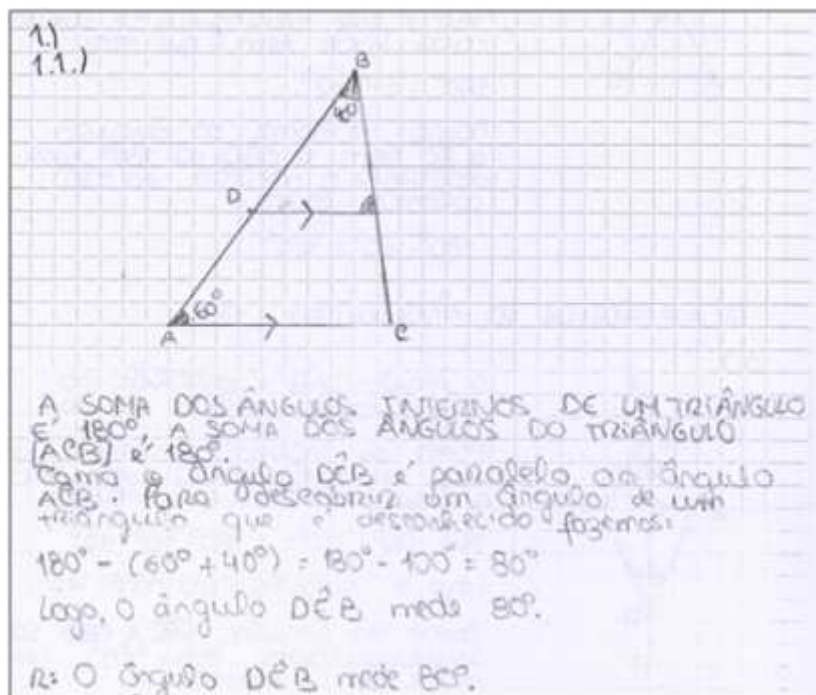 1.)
1.1.)
B
40°
D
60°
A
C
A SOMA DOS ÂNGULOS INTERNOS DE UM TRIÂNGULO
É 180°, A SOMA DOS ÂNGULOS DO TRIÂNGULO
[ACB] é 180°.
Como o ângulo DÊB é paralelo ao ângulo
ACB. Para descobrir um ângulo de um
triângulo que é desconhecido fazemos:
180° - (60° + 40°) = 180° - 100° = 80°
Logo, O ângulo DÊB mede 80°.
R: O ângulo DÊB mede 80°.